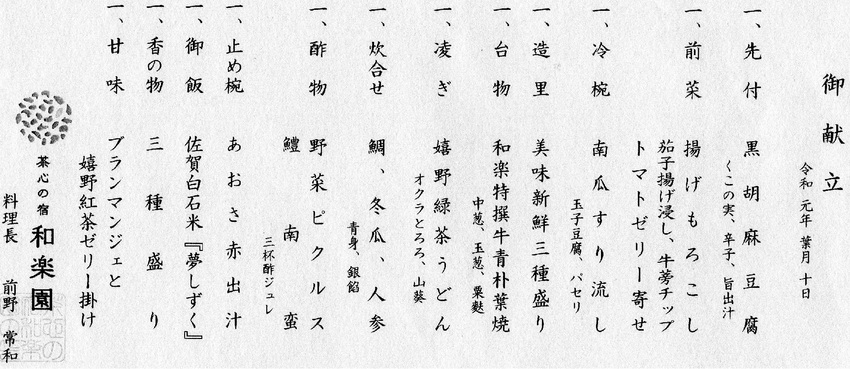 御献立
令和 元年 葉月 十日
一、先付 黒胡麻豆腐
くこの実、辛子、旨出汁
一、前菜 揚げもろこし
茄子揚げ浸し、牛蒡チップ
トマトゼリー寄せ
一、冷椀 南瓜すり流し
玉子豆腐、パセリ
一、造里 美味新鮮三種盛り
一、台物 和楽特撰牛青朴葉焼
中葱、玉葱、粟麩
一、凌ぎ 嬉野緑茶うどん
オクラとろろ、山葵
一、炊合せ 鯛、冬瓜、人参
青身、銀餡
一、酢物 野菜ピクルス
鱧南蛮
三杯酢ジュレ
一、止め椀 あおさ赤出汁
一、御飯 佐賀白石米『夢しずく』
一、香の物 三種盛り
一、甘味 ブランマンジェと
嬉野紅茶ゼリー掛け
茶心の宿 和楽園
料理長 前野 常和